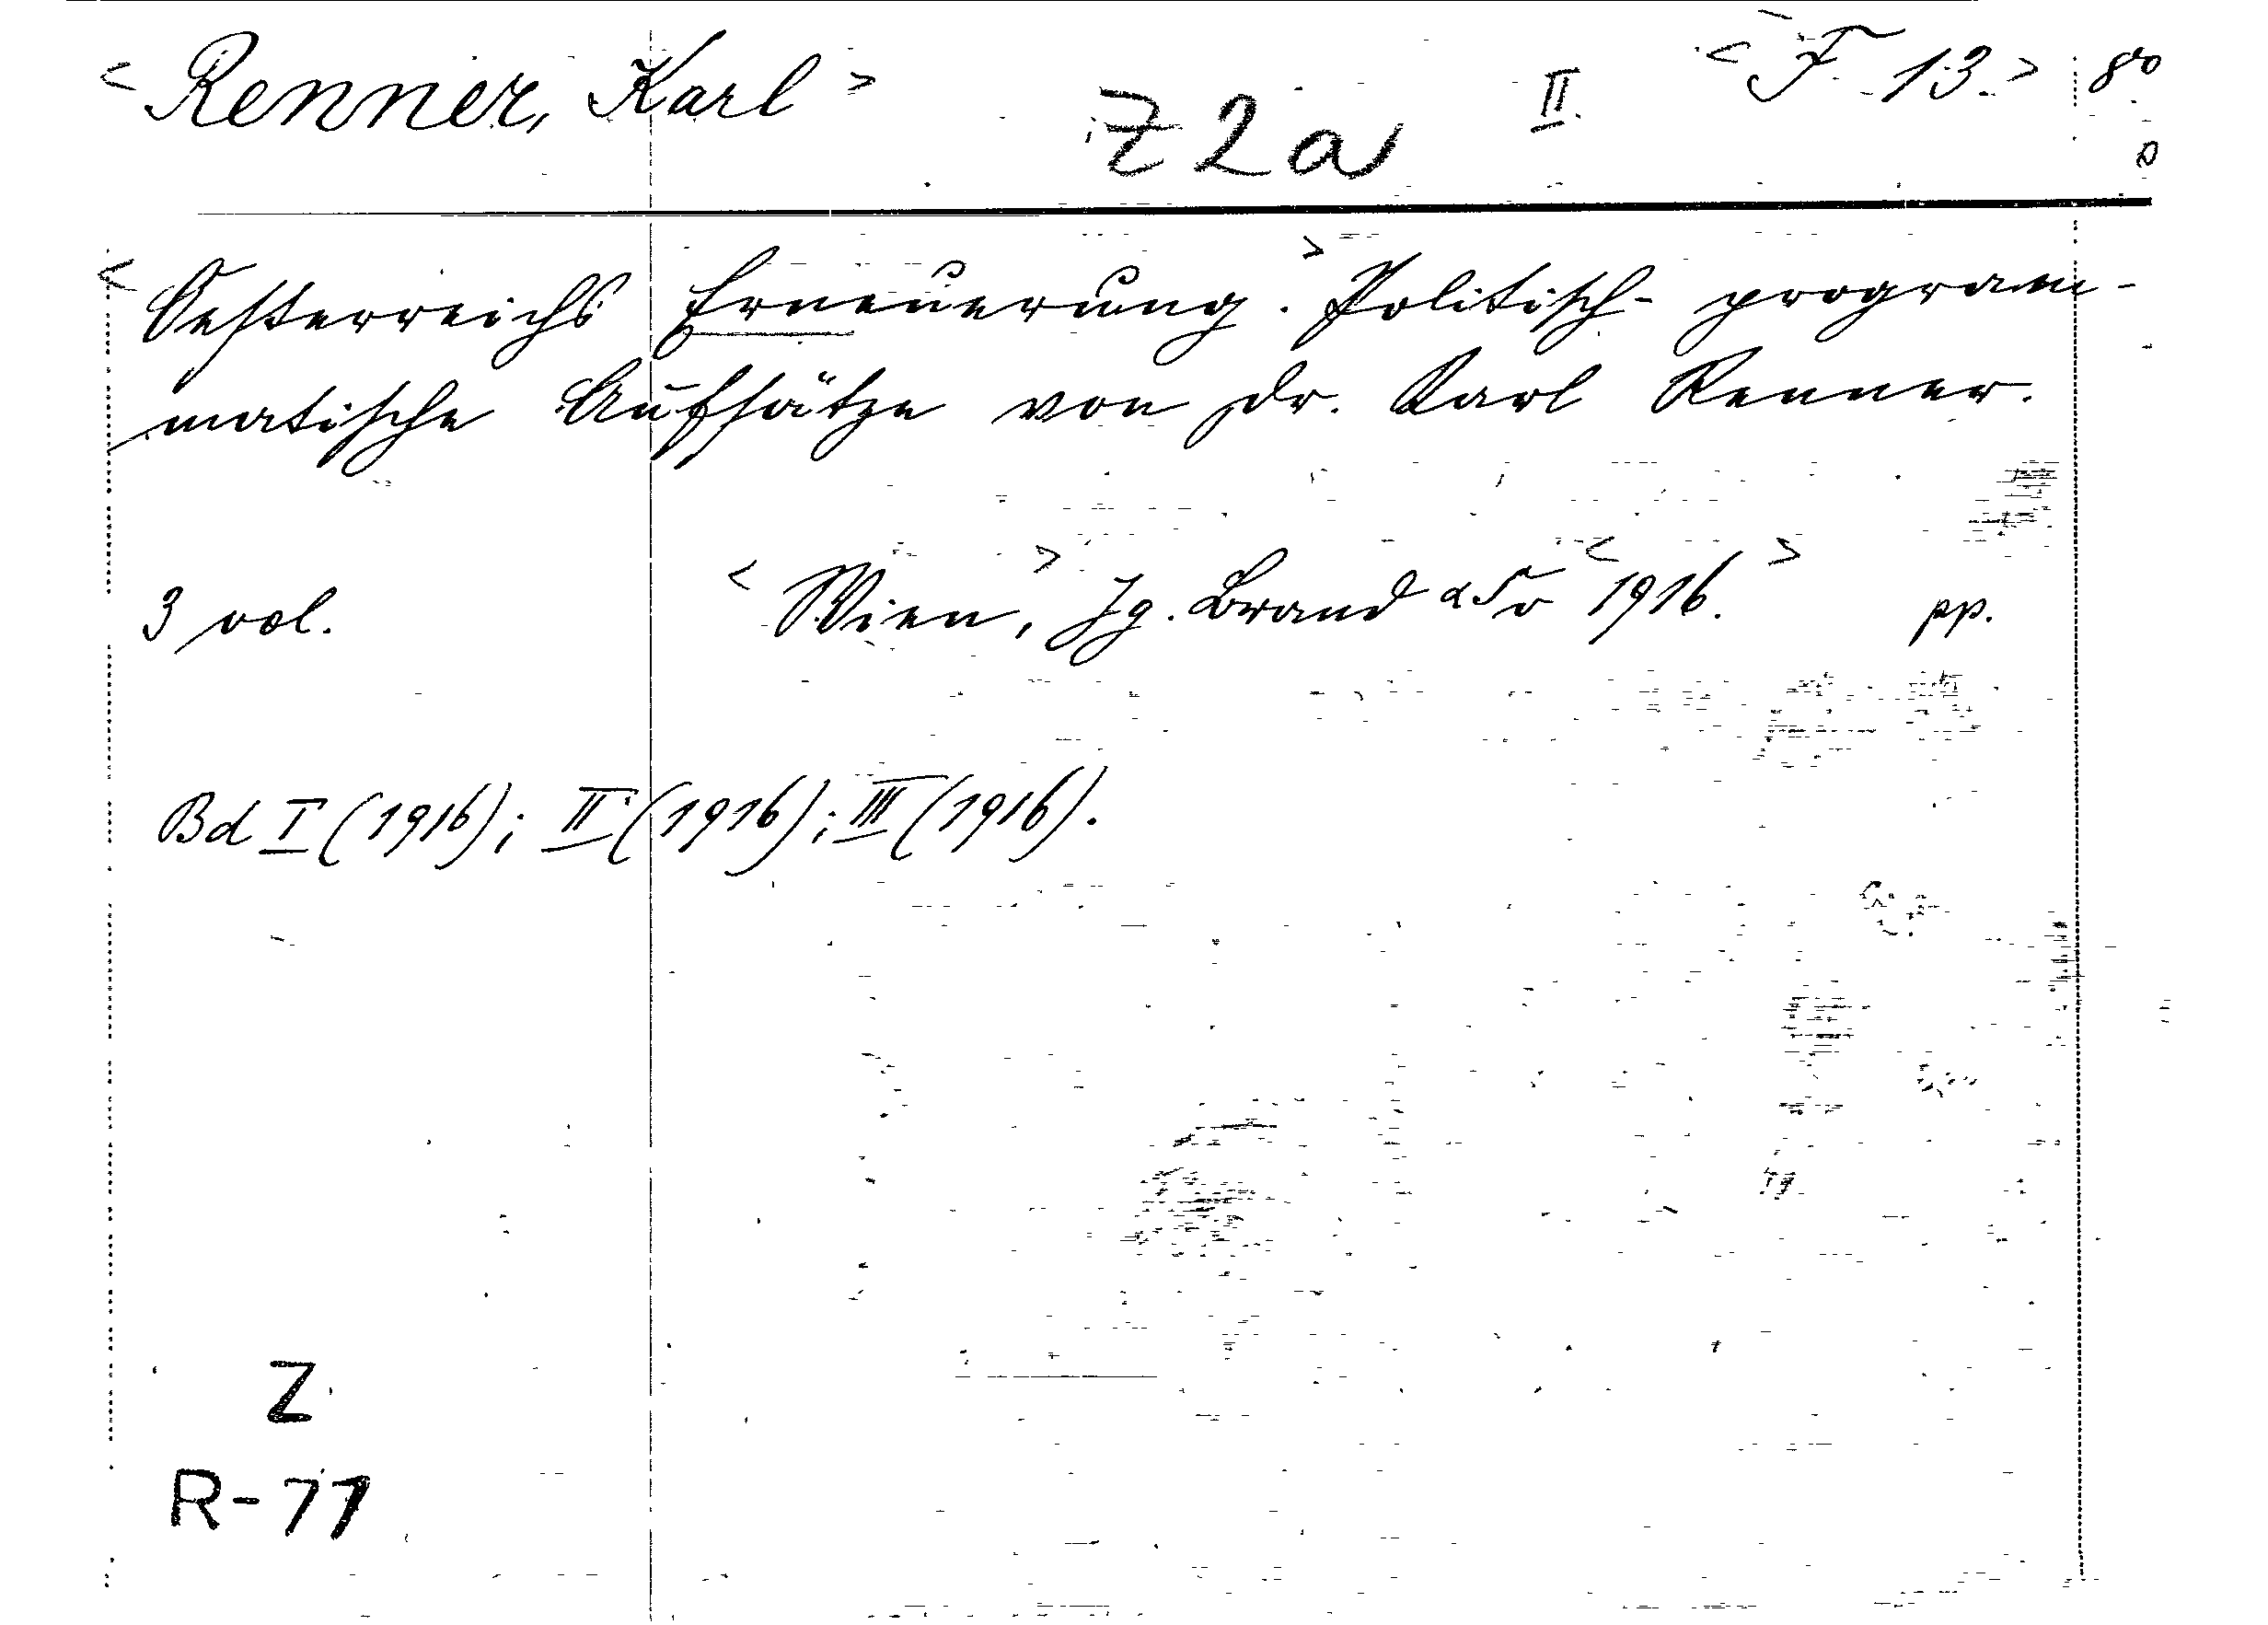 < Renner, Karl > Z 2 a II. < F. 13. > 8°
< Oesterreichs Erneuerung. > Politisch-program-
matische Aufsätze von Dr. Karl Renner.
3 vol. < Wien, > Ig. Brand < 1916. > pp.
Bd I (1916); II (1916); III (1916).
Z
R-77